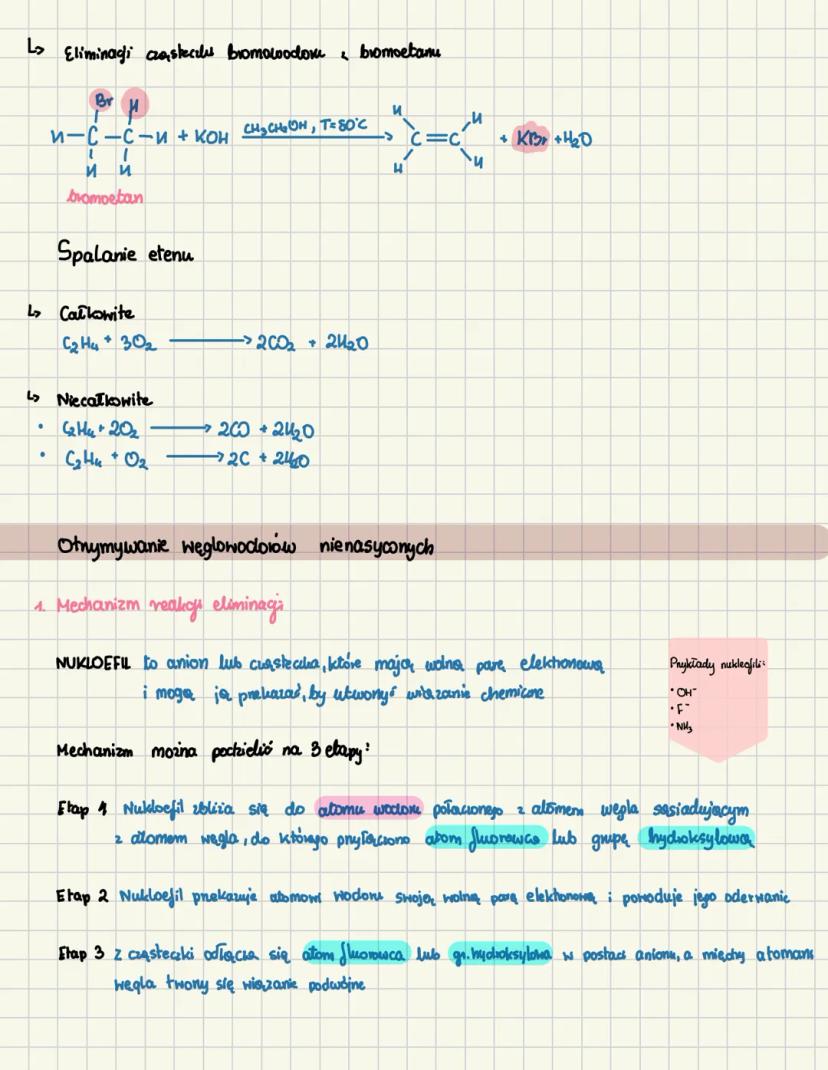 ↳ Eliminacji cząsteczki bromowodoru z bromoetanu
Br H
H H
H—C—C—H + KOH CH₃CH₂OH, T=80°C → C=C + KBr + H₂O
H H H H
bromoetan
Spalanie etenu
↳ Całkowite
C₂H₄ + 3O₂ → 2CO₂ + 2H₂O
↳ Niecałkowite
• C₂H₄ + 2O₂ → 2CO + 2H₂O
• C₂H₄ + O₂ → 2C + 2H₂O
Otrzymywanie węglowodorów nienasyconych
1. Mechanizm reakcji eliminacji
NUKLOEFIL to anion lub cząsteczka, które mają wolną parę elektronową
i mogą ją przekazać, by utworzyć wiązanie chemiczne
Przykłady nukleofili:
• OH⁻
• F⁻
• NH₃
Mechanizm można podzielić na 3 etapy:
Etap 1 Nukloefil zbliża się do atomu wodoru połączonego z atomem węgla sąsiadującym
z atomem węgla, do którego przyłączono atom fluorowca lub grupę hydroksylową
Etap 2 Nukloefil przekazuje atomowi wodoru swoją wolną parę elektronową i powoduje jego oderwanie
Etap 3 z cząsteczki odłącza się atom fluorowca lub gr. hydroksylowa w postaci anionu, a między atomami
węgla tworzy się wiązanie podwójne